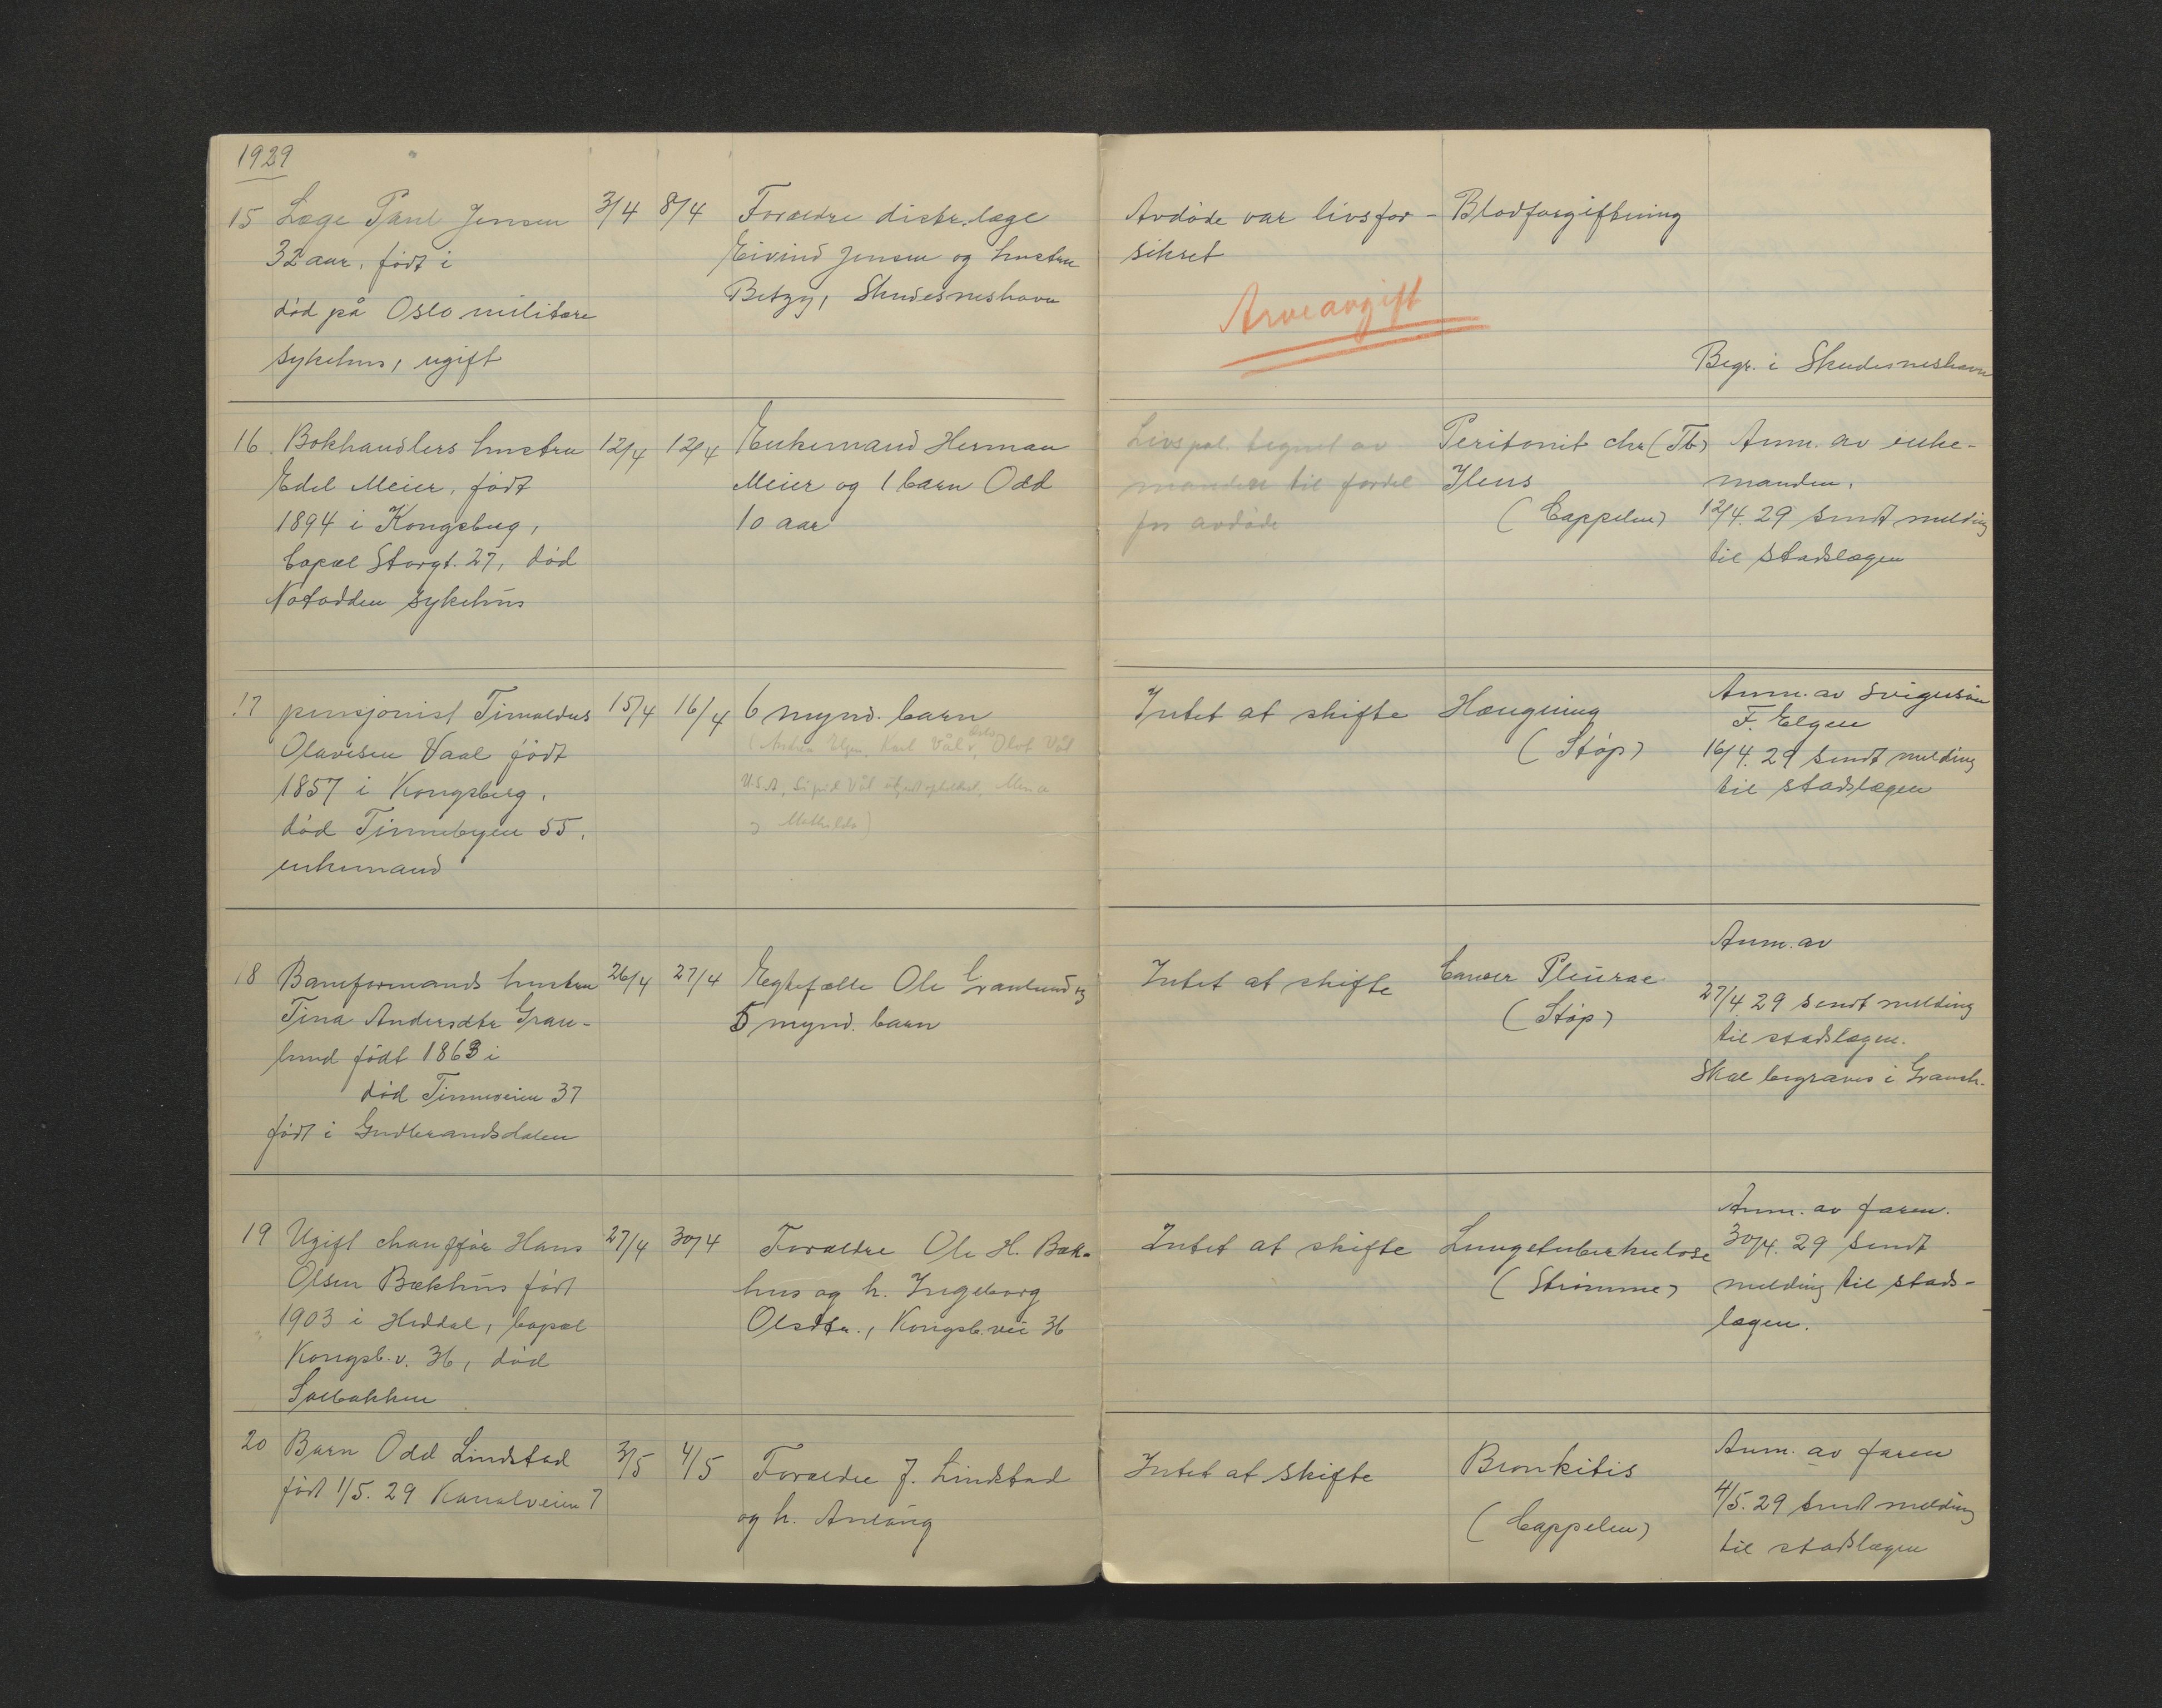 1929
15 Læge Paul Jensen 3/4 8/4 Forældre distr.læge Avdøde var livsfor- Blodforgiftning
32 aar, født i Eivind Jensen og hustru sikret
død på Oslo militære Betzy, Skudesneshavn Arveavgift
sykehus, ugift Begr. i Skudesneshavn
16. Bokhandlers hustru 12/4 12/4 Enkemand Herman Livspol. tegnet av Peritonit chr (Tb) Anm. av enke-
Edel Meier, født Meier og 1 barn Odd manden til fordel Ileus manden.
1894 i Kongsberg, 10 aar for avdøde (Cappelen) 12/4. 29 sendt melding
bopæl Storgt. 27, død til stadslægen
Notodden sykehus
17 pensjonist Timoldus 15/4 16/4 6 mynd. barn Intet at skifte Hængning Anm. av svigersøn
Olavesen Vaal født (Andrea Elgen, Karl Vål v. Oslo, Olof Vål (Støp) F. Elgen
1857 i Kongsberg, U.S.A, Sigurd Vål ukjent opholdsted, Mina 16/4. 29 sendt melding
død Tinnebyen 55, og Mathilda) til stadslægen
enkemand
18 Baneformands hustru 26/4 27/4 Egtefælle Ole Granlund og Intet at skifte Cancer Pleurae Anm. av
Tina Andersdtr Gran- 5 mynd. barn (Støp) 27/4. 29 sendt melding
lund født 1863 i til stadslægen.
død Tinneveien 37 Skal begraves i Gransh.
født i Gudbrandsdalen
19 Ugift chauffør Hans 27/4 30/4 Forældre Ole H. Bæk- Intet at skifte Lungetuberkulose Anm. av faren.
Olsen Bækhus født hus og h. Ingeborg (Strømme) 30/4. 29 sendt
1903 i Heddal, bopæl Olsdtr., Kongsb.vei 36 melding til stads-
Kongsb.v. 36, død lægen.
Solbakken
20 Barn Odd Lindstad 3/5 4/5 Forældre J. Lindstad Intet at skifte Bronkitis Anm. av faren
født 1/5. 29 Kanalveien 7 og h. Anlaug (Cappelen) 4/5. 29 sendt melding
til stadslægen